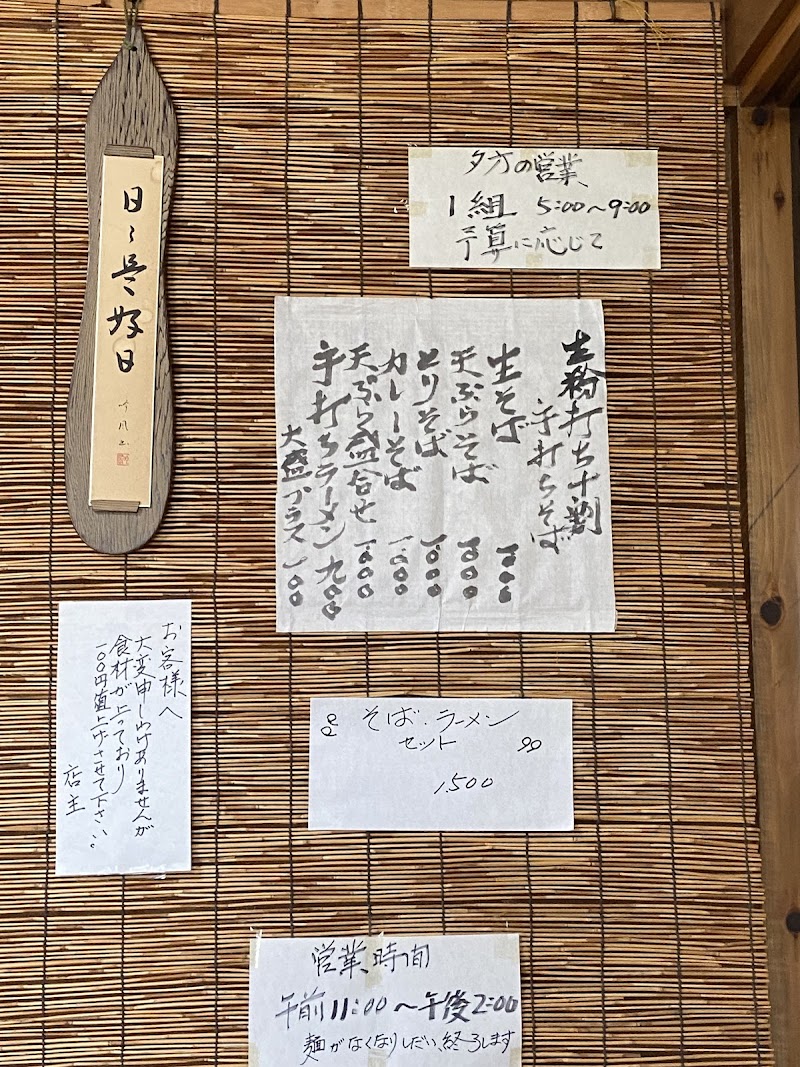 日々是好日
夕方の営業
1組 5:00〜9:00
予算に応じて
生粉打ち十割
手打ちそば
生そば 一〇〇〇
天ぷらそば 一〇〇〇
とりそば 一〇〇〇
カレーそば 一〇〇〇
天ぷら盛合せ 一〇〇〇
手打ちラーメン 九〇〇
大盛プラス 一〇〇
お客様へ
大変申しわけありませんが
食材が上っており
一〇〇円値上げさせて下さい。
店主
そば・ラーメン
セット
1,500
営業時間
午前11:00〜午後2:00
麺がなくなりしだい終ろします